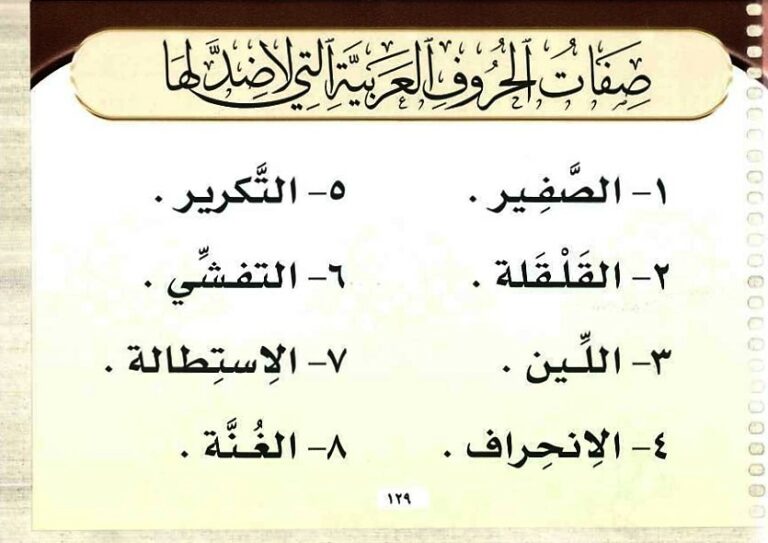 صِفَاتُ الحُرُوفِ العَرَبِيَّةِ الَّتِي لَا ضِدَّ لَهَا
١- الصَّفِير .
٢- القَلْقَلة .
٣- اللِّـين .
٤- الِانحِراف .
٥- التَّكرير .
٦- التفشِّي .
٧- الِاستِطالة .
٨- الغُـنَّة .
١٢٩